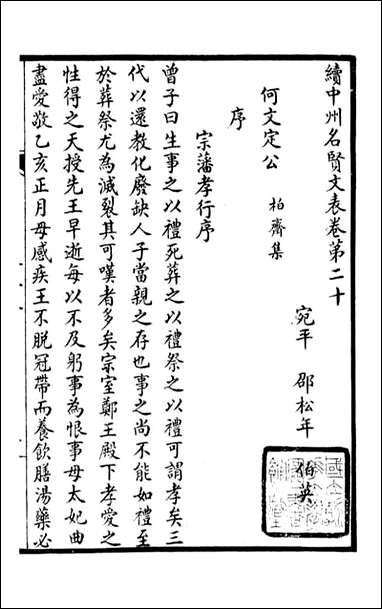 續中州名賢文表卷第二十
宛平　邵松年　伯英
何文定公　柏齋集
序
宗藩孝行序
曾子曰生事之以禮死葬之以禮祭之以禮可謂孝矣三
代以還教化廢缺人子當親之存也事之尚不能如禮至
於葬祭尤為滅裂其可嘆者多矣宗室鄭王殿下孝愛之
性得之天授先王早逝每以不及躬事為恨事母太妃曲
盡愛敬乙亥正月母感疾王不脫冠帶而養飲膳湯藥必